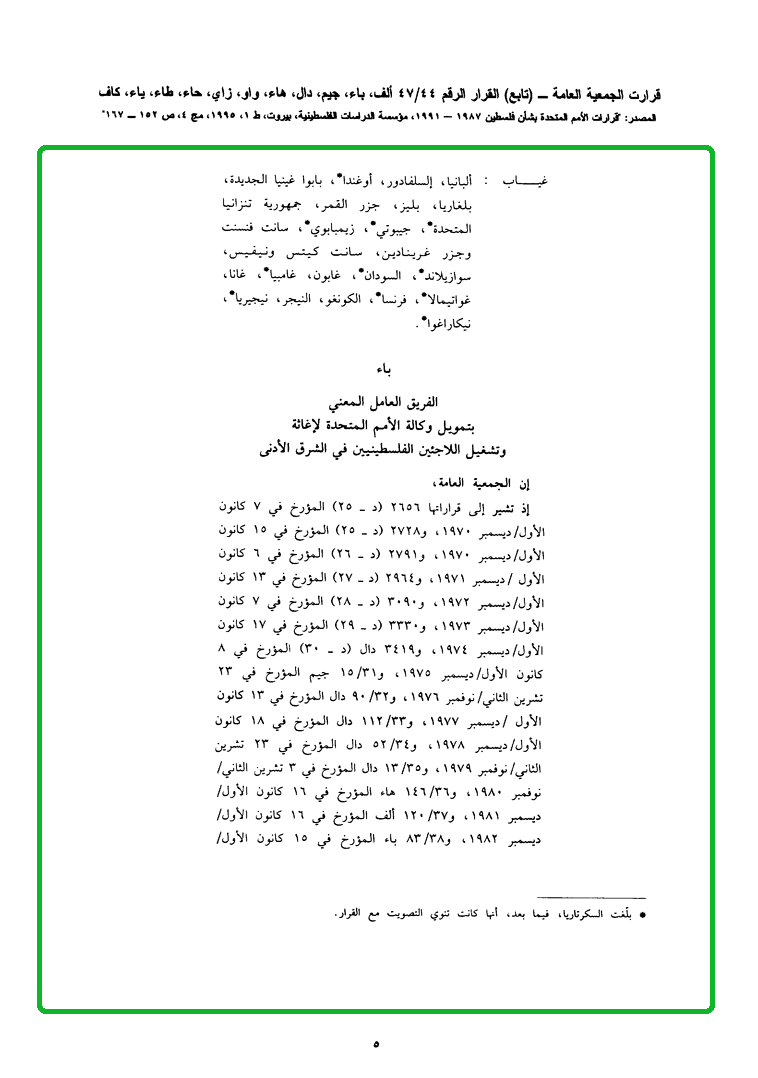 قرارت الجمعية العامة ــ (تابع) القرار الرقم ٤٧/٤٤ ألف، باء، جيم، دال، هاء، واو، زاي، حاء، طاء، ياء، كاف
المصدر: "قرارات الأمم المتحدة بشأن فلسطين ١٩٨٧ – ١٩٩١، مؤسسة الدراسات الفلسطينية، بيروت، ط ١، ١٩٩٥، مج ٤، ص ١٥٢ ــ ١٦٧"
غيـــاب : ألبانيا، إلسلفادور، أوغندا*، بابوا غينيا الجديدة،
بلغاريا، بليز، جزر القمر، جمهورية تنزانيا
المتحدة*، جيبوتي*، زيمبابوي*، سانت فنسنت
وجزر غرينادين، سانت كيتس ونيفيس،
سوازيلاند*، السودان*، غابون، غامبيا*، غانا،
غواتيمالا*، فرنسا*، الكونغو، النيجر، نيجيريا*،
نيكاراغوا*.
باء
الفريق العامل المعني
بتمويل وكالة الأمم المتحدة لإغاثة
وتشغيل اللاجئين الفلسطينيين في الشرق الأدنى
إن الجمعية العامة،
إذ تشير إلى قراراتها ٢٦٥٦ (د ـ ٢٥) المؤرخ في ٧ كانون
الأول/ديسمبر ١٩٧٠، و٢٧٢٨ (د ـ ٢٥) المؤرخ في ١٥ كانون
الأول/ديسمبر ١٩٧٠، و٢٧٩١ (د ـ ٢٦) المؤرخ في ٦ كانون
الأول /ديسمبر ١٩٧١، و٢٩٦٤ (د ـ ٢٧) المؤرخ في ١٣ كانون
الأول/ديسمبر ١٩٧٢، و٣٠٩٠ (د ـ ٢٨) المؤرخ في ٧ كانون
الأول/ديسمبر ١٩٧٣، و٣٣٣٠ (د ـ ٢٩) المؤرخ في ١٧ كانون
الأول/ديسمبر ١٩٧٤، و٣٤١٩ دال (د ـ ٣٠) المؤرخ في ٨
كانون الأول/ديسمبر ١٩٧٥، و١٥/٣١ جيم المؤرخ في ٢٣
تشرين الثاني/نوفمبر ١٩٧٦، و٩٠/٣٢ دال المؤرخ في ١٣ كانون
الأول /ديسمبر ١٩٧٧، و١١٢/٣٣ دال المؤرخ في ١٨ كانون
الأول/ديسمبر ١٩٧٨، و٥٢/٣٤ دال المؤرخ في ٢٣ تشرين
الثاني/نوفمبر ١٩٧٩، و١٣/٣٥ دال المؤرخ في ٣ تشرين الثاني/
نوفمبر ١٩٨٠، و١٤٦/٣٦ هاء المؤرخ في ١٦ كانون الأول/
ديسمبر ١٩٨١، و١٢٠/٣٧ ألف المؤرخ في ١٦ كانون الأول/
ديسمبر ١٩٨٢، و٨٣/٣٨ باء المؤرخ في ١٥ كانون الأول/
* بلّغت السكرتاريا، فيما بعد، أنها كانت تنوي التصويت مع القرار.
٥